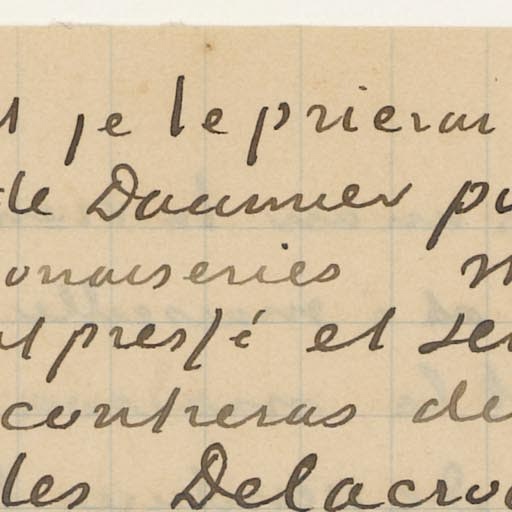 je le prierai
de Daumier pu
onaiseries
pressé et se
contreras de
des Delacro